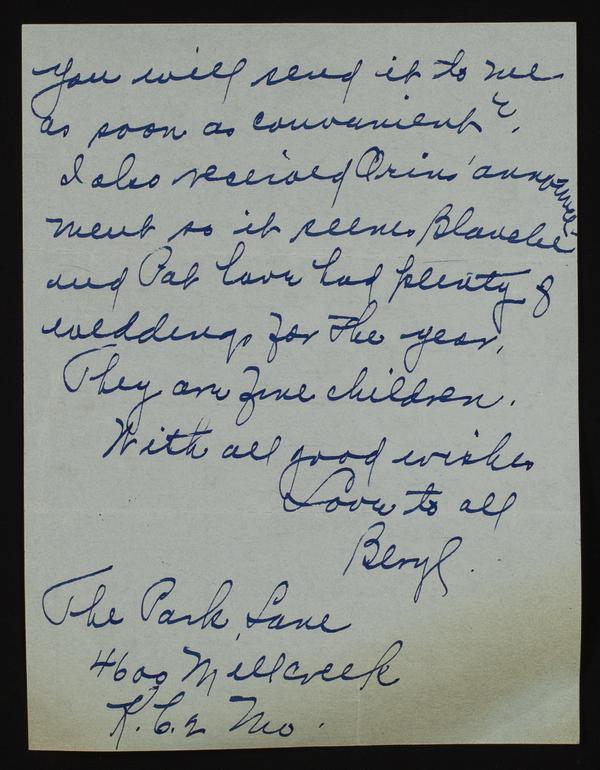 You will send it to me
as soon as convenient.
I also received Orins' announce-
ment so it seems Blanche
and Pat have had plenty of
weddings for the year.
They are fine children.
With all good wishes
Love to all
Beryl.
The Park Lane
4600 Millcreek
K.C. 2 Mo.